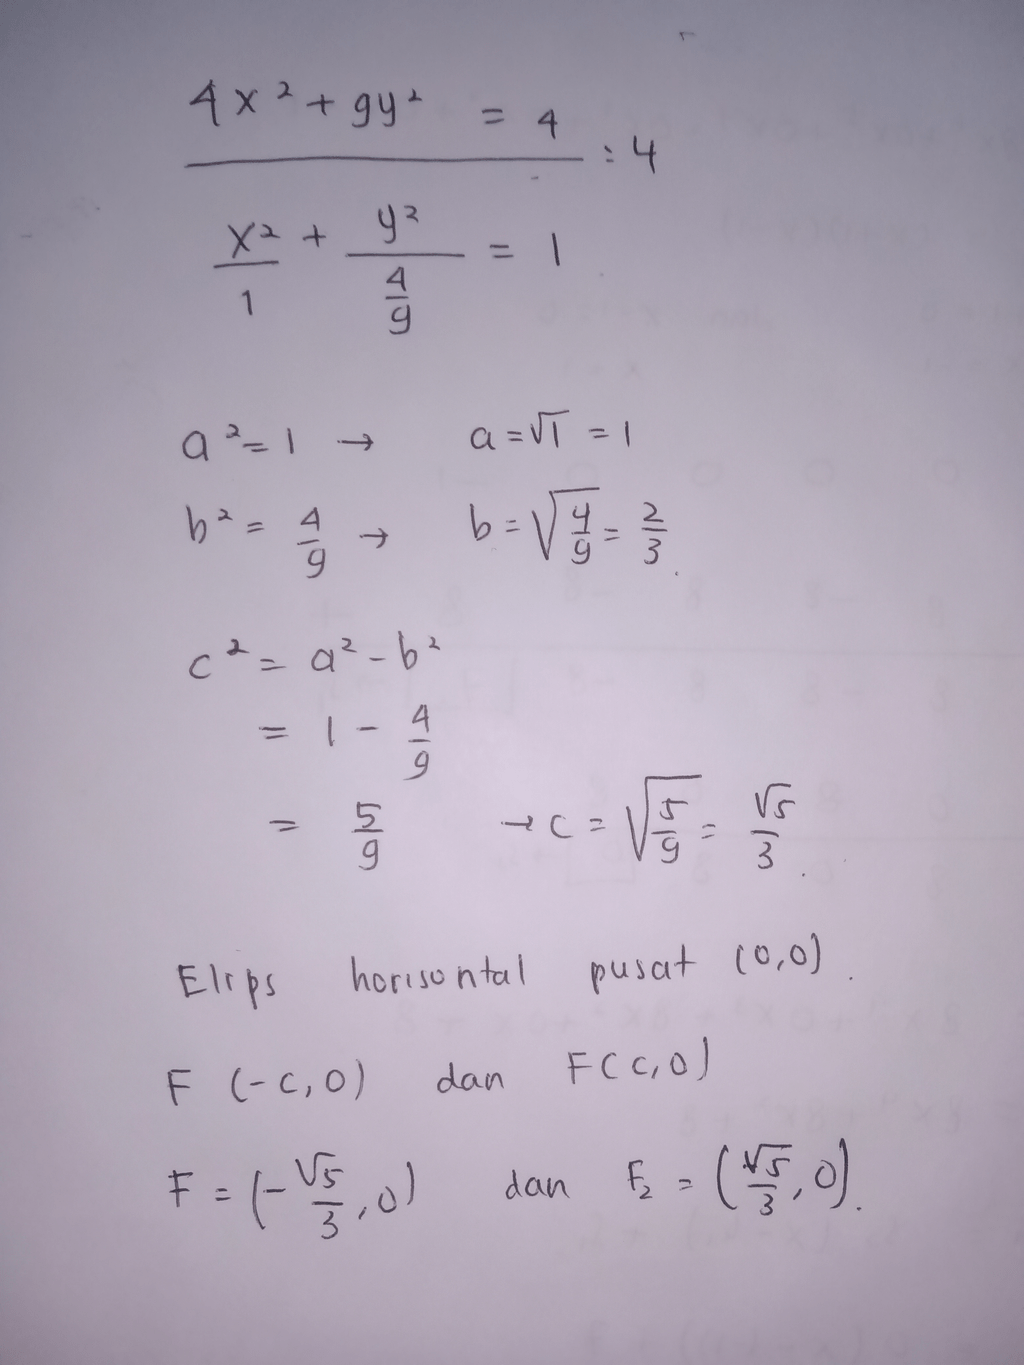 4x² + 9y² = 4 : 4
x²/1 + y²/(4/9) = 1
a² = 1 → a = √1 = 1
b² = 4/9 → b = √(4/9) = 2/3.
c² = a² - b²
= 1 - 4/9
= 5/9 → c = √(5/9) = √5/3.
Elips horisontal pusat (0,0).
F (-c, 0) dan F(c, 0)
F = (-√5/3, 0) dan F₂ = (√5/3, 0).